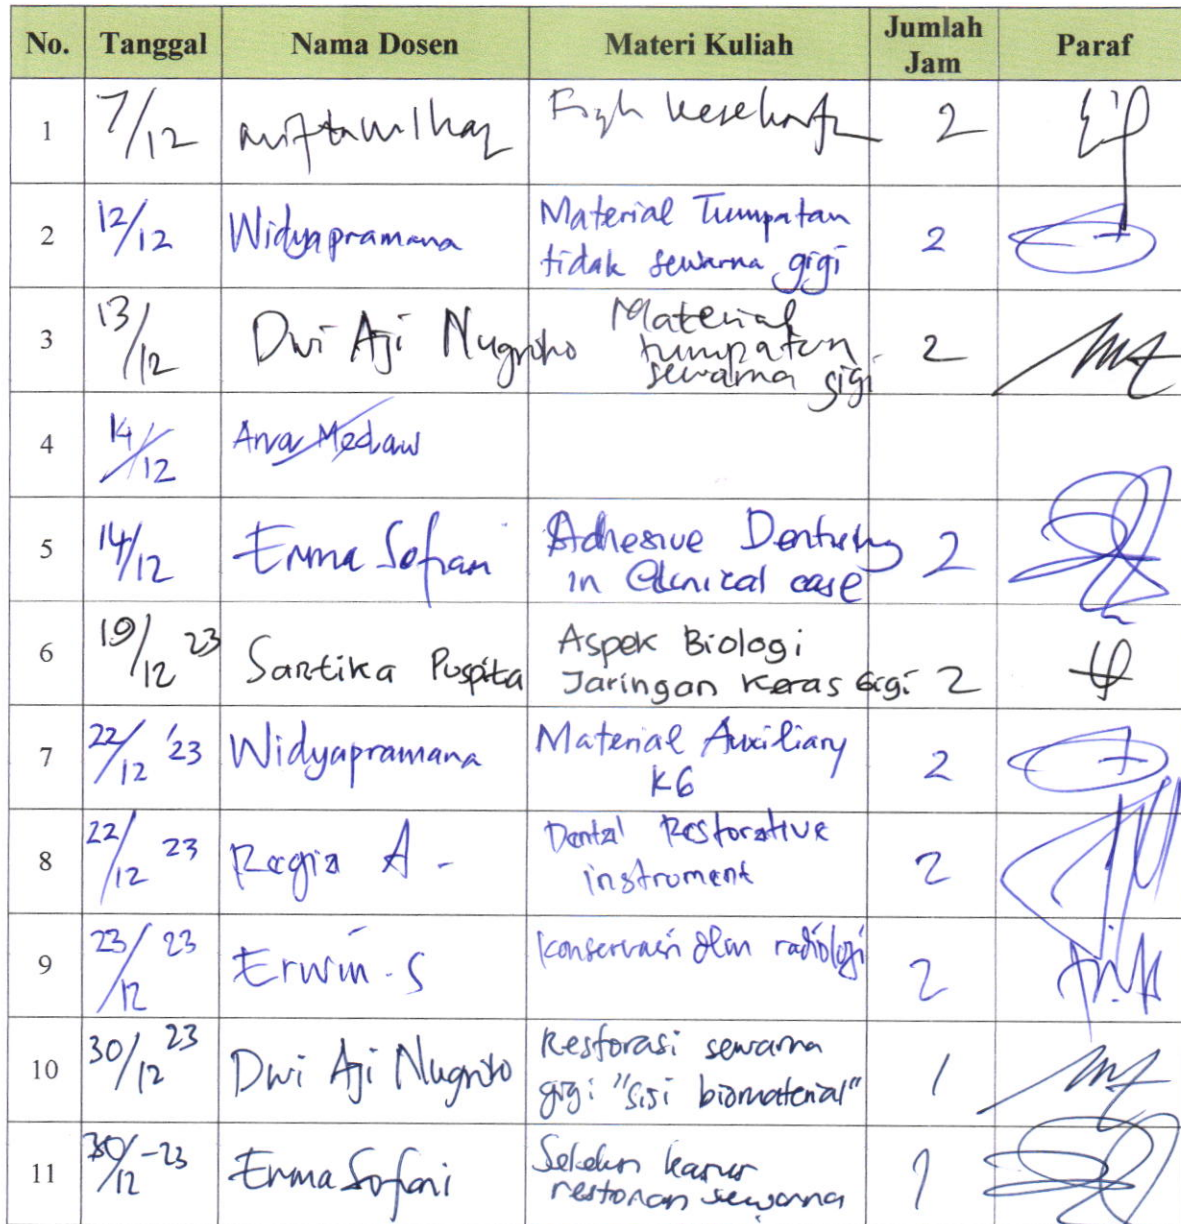 No. Tanggal Nama Dosen Materi Kuliah Jumlah Jam Paraf
1 7/12 miftahulhaq Fiqh kesehatan 2
2 12/12 Widyapramana Material Tumpatan
tidak sewarna gigi 2
3 13/12 Dwi Aji Nugroho Material
tumpatan
sewarna gigi 2
4 14/12 Ana Medaw
5 14/12 Erma Sofiani Adhesive Dentistry
in Clinical case 2
6 19/12 23 Sartika Puspita Aspek Biologi
Jaringan Keras Gigi 2
7 22/12 '23 Widyapramana Material Auxiliary
K6 2
8 22/12 23 Regia A - Dental Restorative
instrument 2
9 23/12 23 Erwin . S Konservasi dlm radiologi 2
10 30/12 23 Dwi Aji Nugroho Restorasi sewarna
gigi "sisi biomaterial" 1
11 30/12 -23 Erma Sofiani Seleksi kasus
restorasi sewarna 1